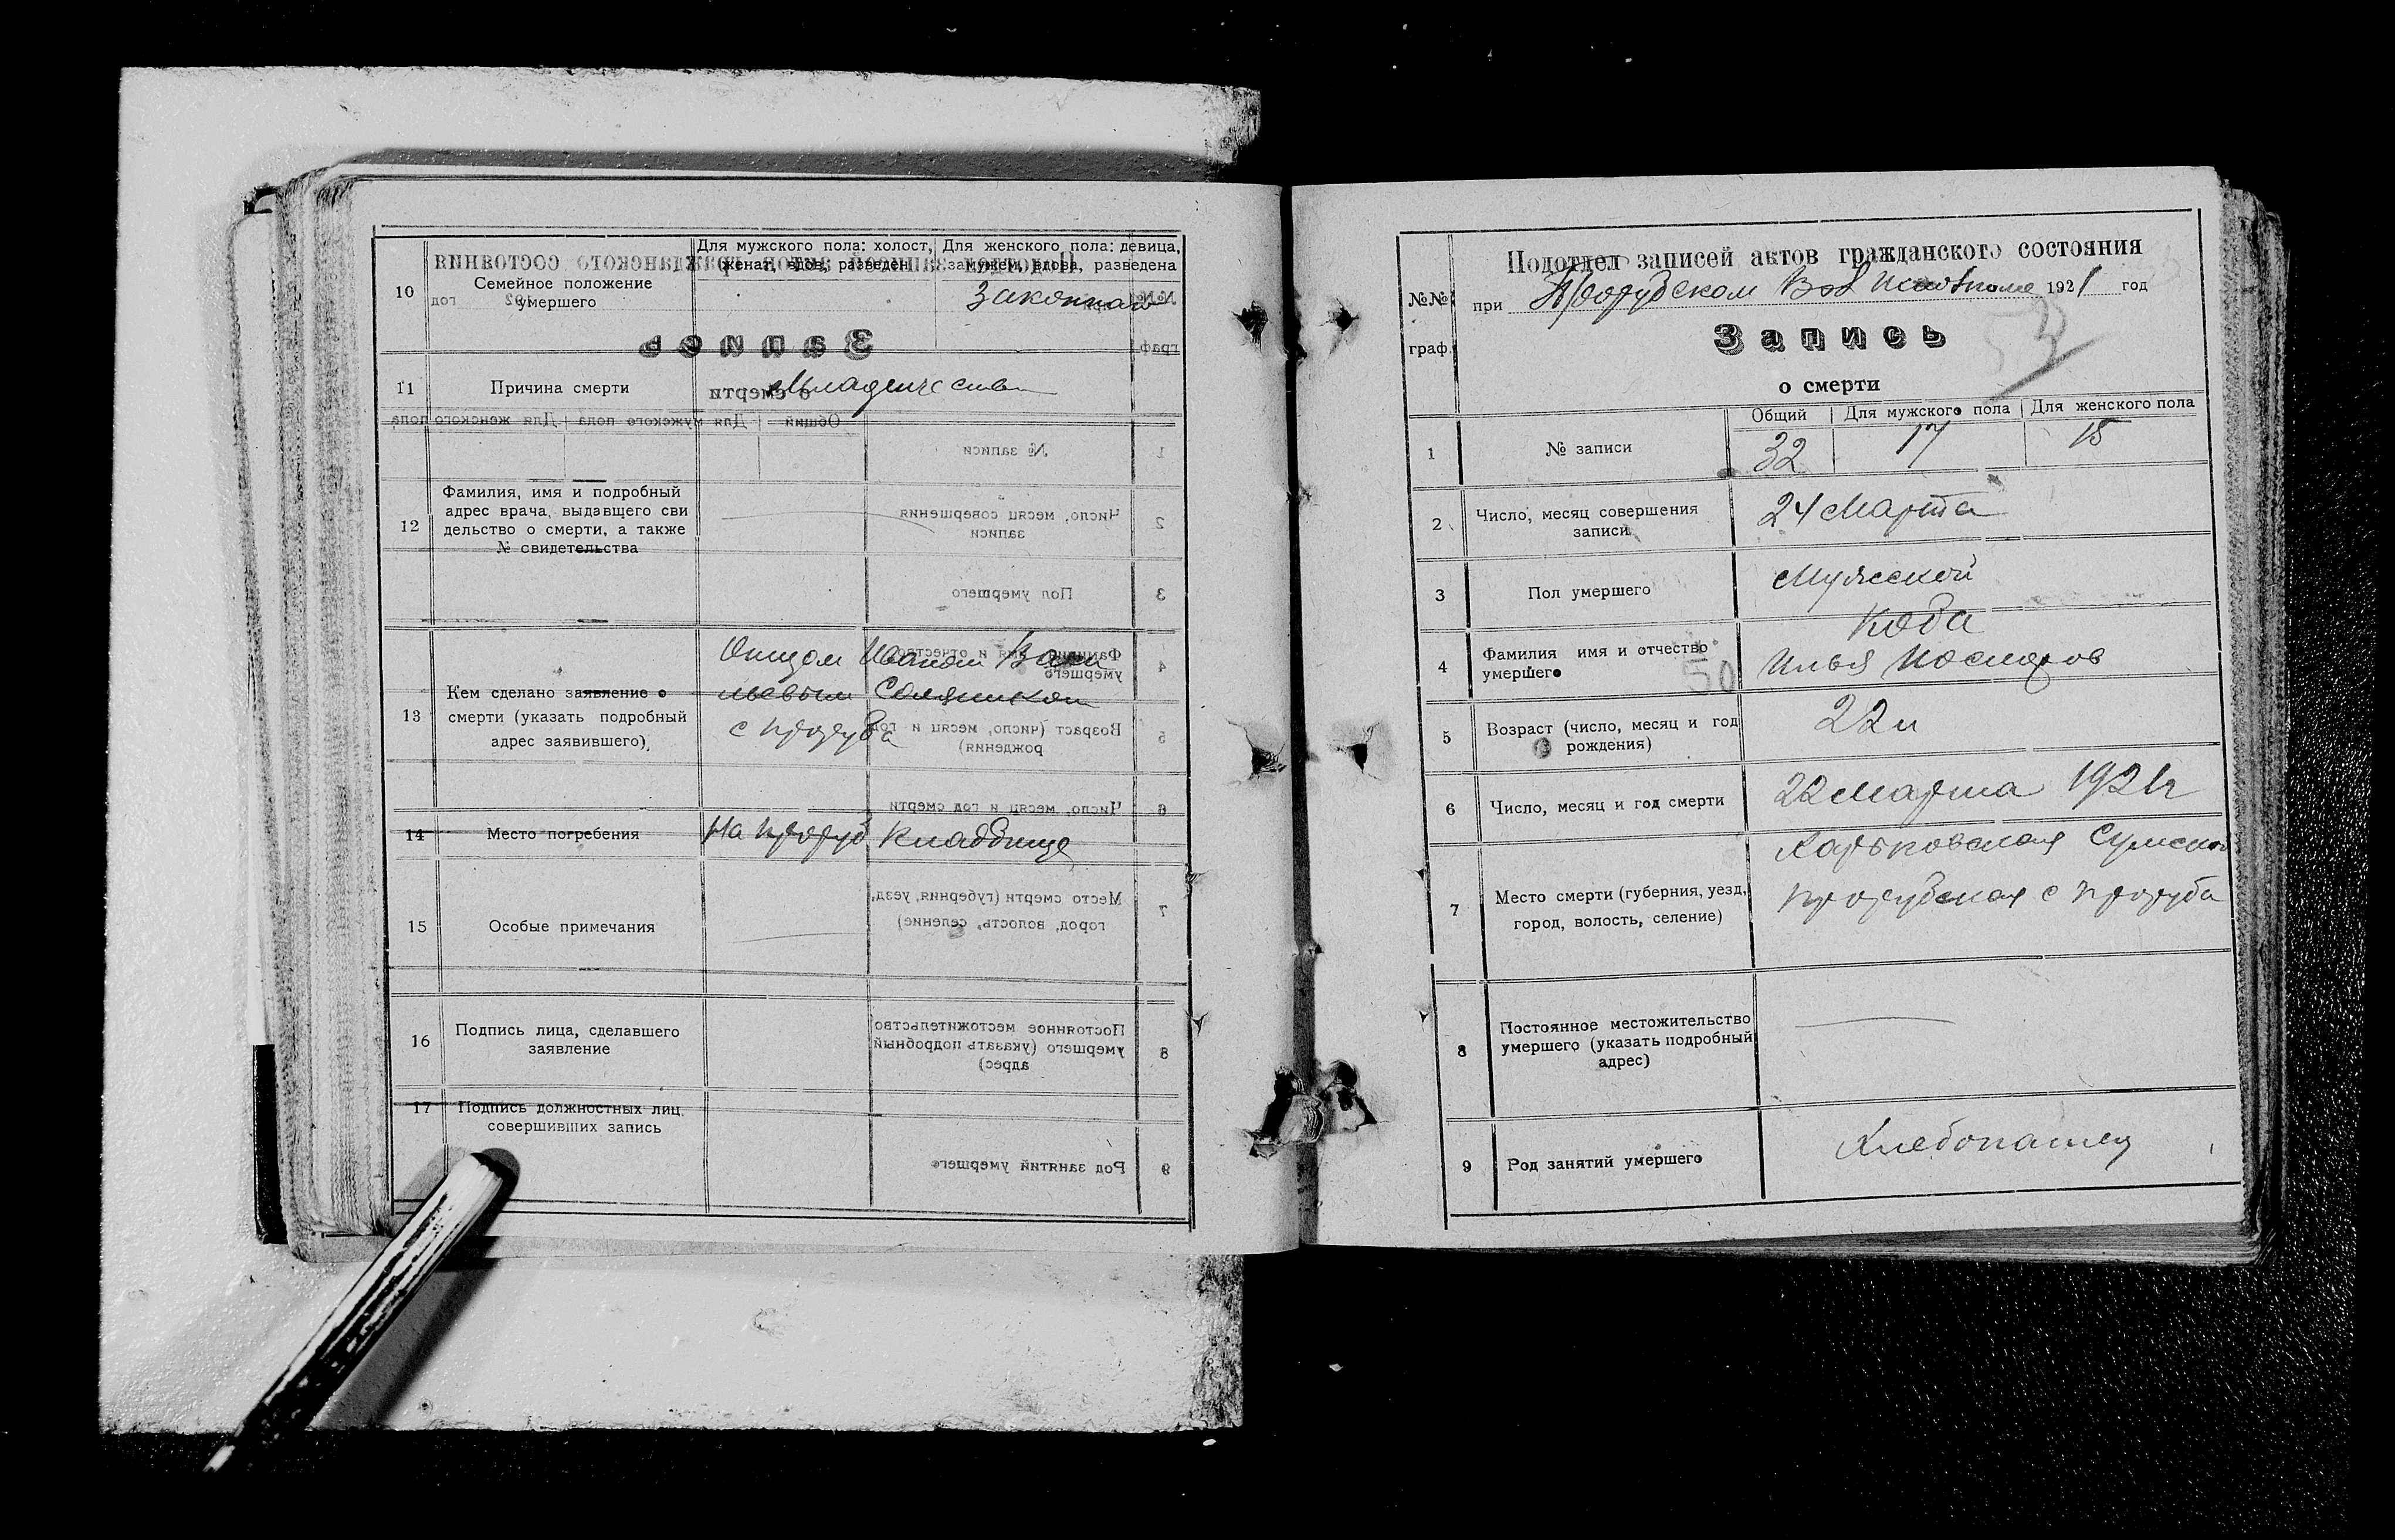 10
Семейное положение
умершего
Для мужского пола: холост,
женат, вдов, разведен
Для женского пола: девица,
замужем, вдова, разведена
11
Причина смерти
12
Фамилия, имя и подробный
адрес врача, выдавщего сви
дельство о смерти, а также
№ свидетельства
13
Кем сделано заявление о
смерти (указать подробный
адрес заявившего),
Отцом Иваном
с Проруба
14
Место погребения
На Проруб Кладбище
15
Особые примечания
16
Подпись лица, сделавшего
заявление
17
Подпись должностных лиц,
совершивших запись
№№
граф.
Подотдел записей актов гражданского состояния
при Прорубском 1921 год
Запись
53
о смерти
Общий Для мужского пола Для женского пола
1
№ записи
32 17 15
2
Число, месяц совершения
записи
24 Марта
3
Пол умершего
Мужской
4
Фамилия имя и отчество
умершего
50
Коба
Илья
5
Возраст (число, месяц и год
рождения)
22
6
Число, месяц и год смерти
22 Марта 1921 г
7
Место смерти (губерния, уезд,
город, волость, селение)
Харьковская Сумской
Прорубская с Проруба
8
Постоянное местожительство
умершего (указать подробный
адрес)
9
Род занятий умершего
Хлебопашец